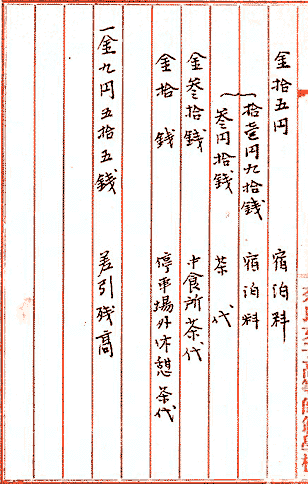 金拾五円 宿泊料
拾壹円九拾銭 宿泊料
叁円拾銭 茶代
金叁拾銭 中食所茶代
金拾銭 停車場外休憩茶代
一金九円五拾五銭 差引残高